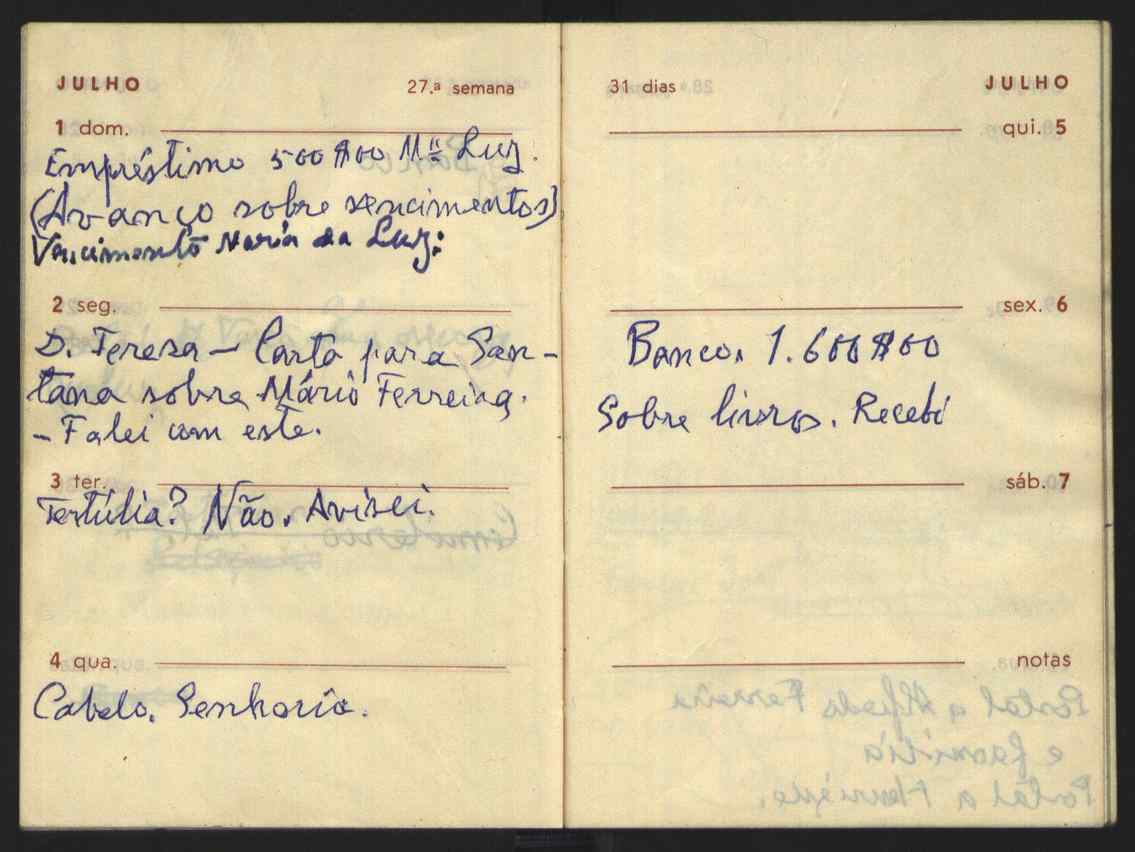 JULHO 27.ª semana
1 dom.
Empréstimo 500$00 Mª Luz.
(Avanço sobre vencimentos)
Vencimento Maria da Luz:
2 seg.
D. Teresa – Carta para San-
tana sobre Mário Ferreira.
– Falei com este.
3 ter.
Tertúlia? Não. Avisei.
4 qua.
Cabelo. Senhoria.
31 dias JULHO
qui. 5
sex. 6
Banco. 1.600$00
Sobre livros. Recebi
sáb. 7
notas